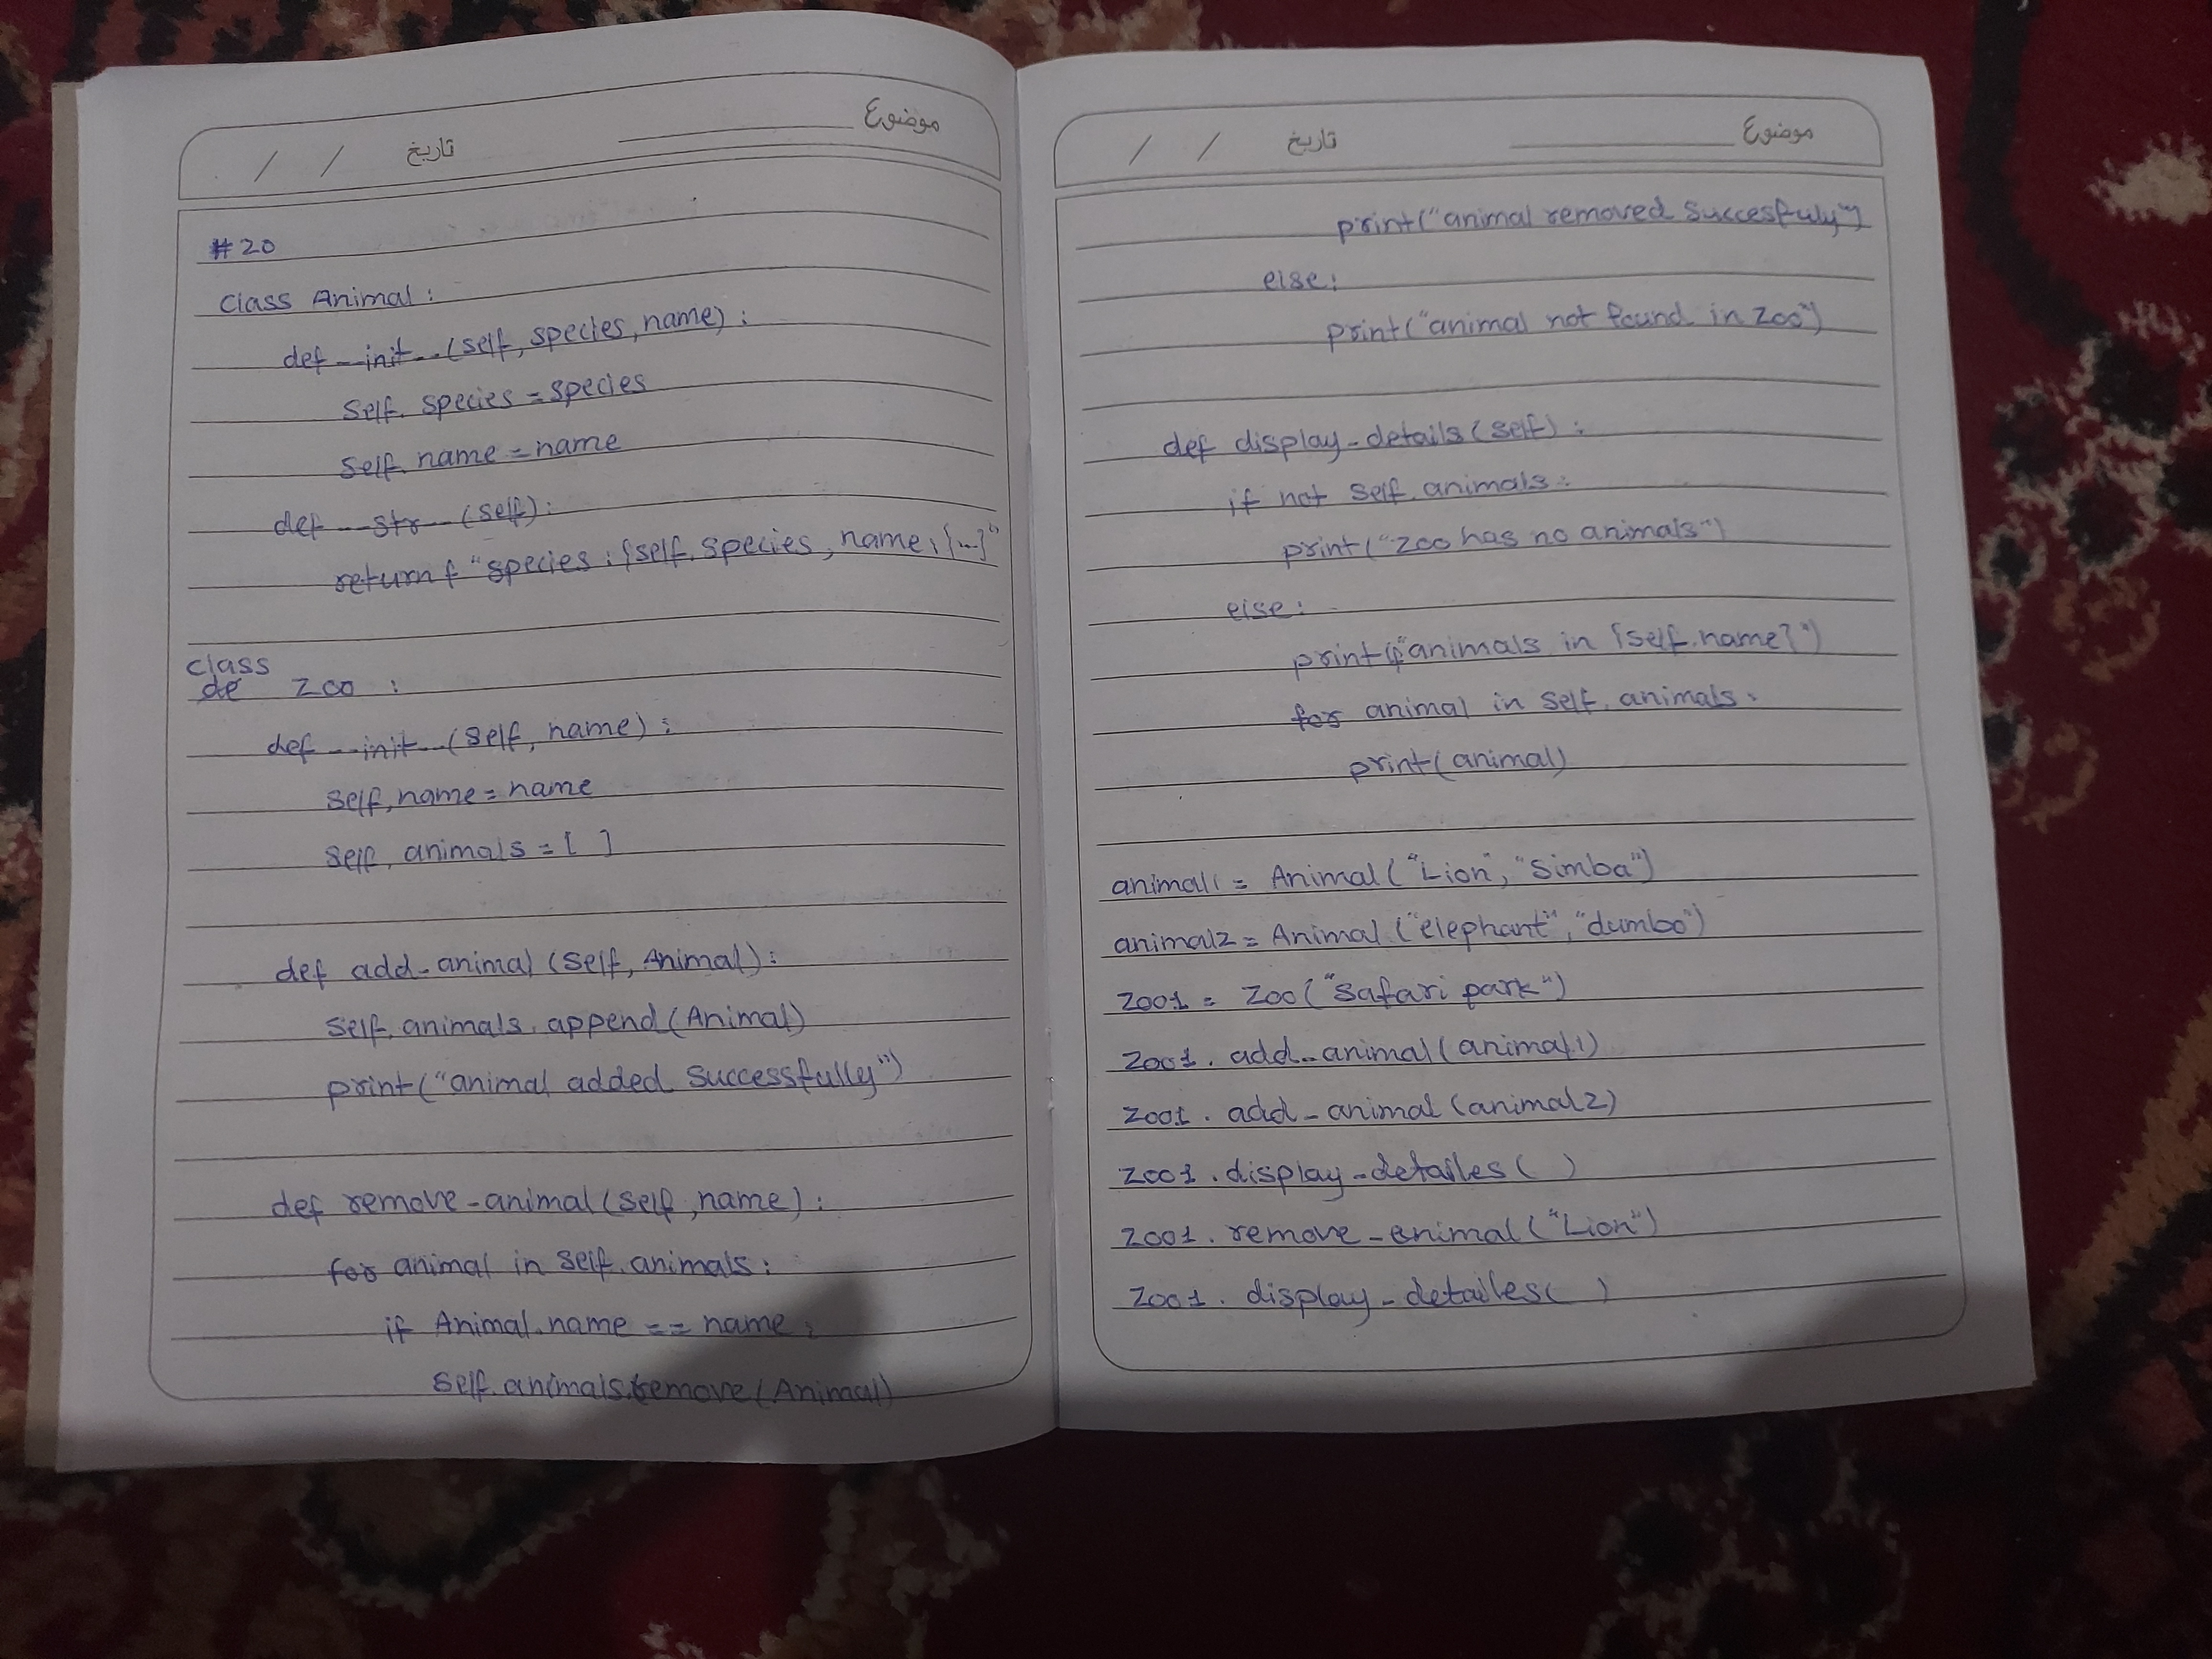 / / تاريخ موضوع
#20
class Animal:
def __init__(self, species, name):
self.species = species
self.name = name
def __str__(self):
return f"species:{self.species, name:{...}"
class
de Zoo :
def __init__(self, name):
self.name = name
self.animals = [ ]
def add_animal(self, Animal):
self.animals.append(Animal)
print("animal added successfully")
def remove_animal(self, name):
for animal in self.animals:
if Animal.name == name:
self.animals.remove(Animal)
/ / تاريخ موضوع
print("animal removed succesfuly")
else:
print("animal not found in zoo")
def display_details(self):
if not self.animals:
print("zoo has no animals")
else:
print(f"animals in {self.name}")
for animal in self.animals:
print(animal)
animal1 = Animal("Lion", "simba")
animal2 = Animal("elephant", "dumbo")
zoo1 = Zoo("safari park")
zoo1.add_animal(animal1)
zoo1.add_animal(animal2)
zoo1.display_detailes( )
zoo1.remove_animal("Lion")
zoo1.display_detailes( )